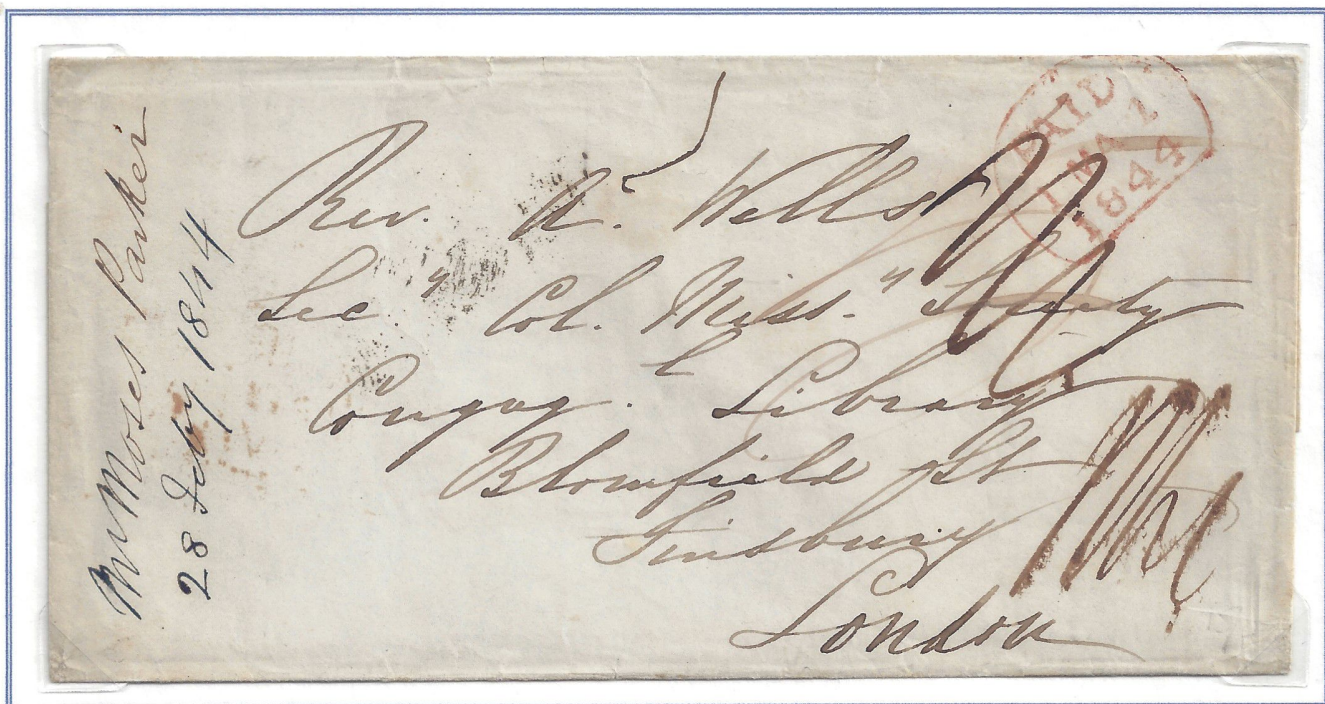 Mr Moses Parker
28 Feby 1844
PAID
1 MA 1
1844
Rev. A. Wells
Secy Col. Missy Society
Congreg. Library
Blomfield St
Finsbury
London